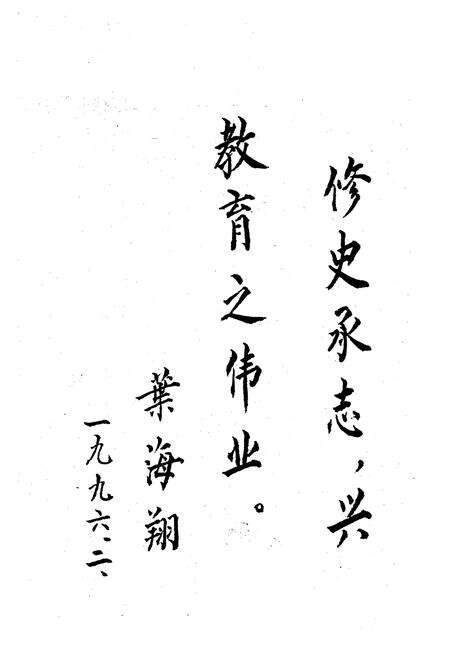 修史承志，兴
教育之伟业。
葉海翔
一九九六、二、